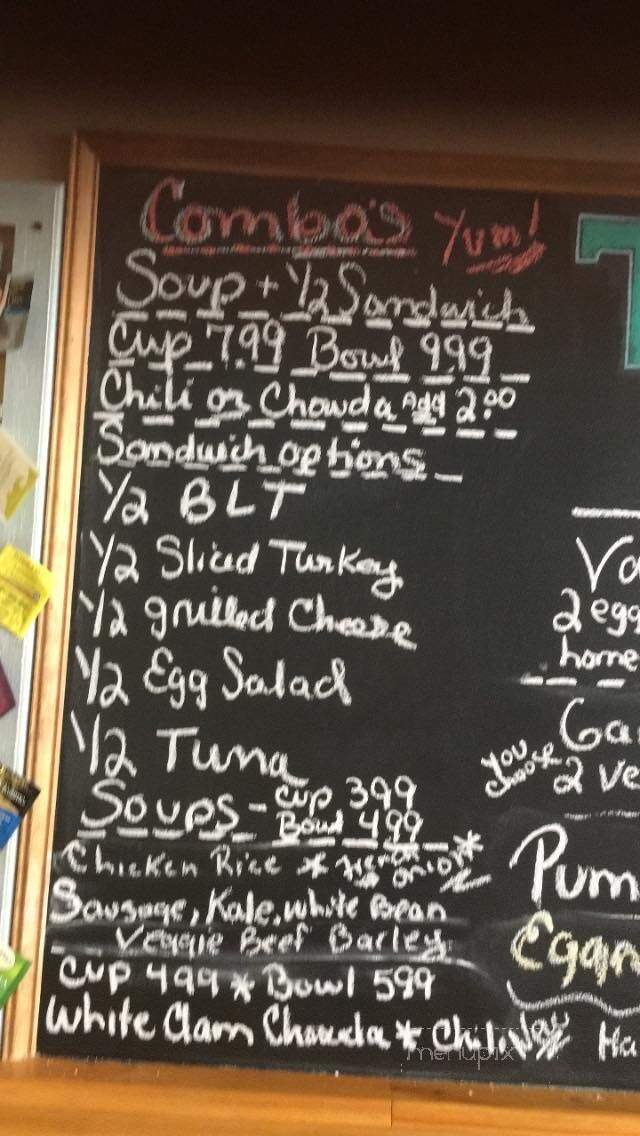 Combo's Yum!
Soup + 1/2 Sandwich
Cup 7.99 Bowl 9.99
Chili or Chowda Add 2.00
Sandwich options
1/2 BLT
1/2 Sliced Turkey
1/2 grilled Cheese
1/2 Egg Salad
1/2 Tuna
Soups - Cup 399
Bowl 499
Chicken Rice * French onion *
Sausage, Kale, white Bean
Veggie Beef Barley
Cup 499 * Bowl 599
White Clam Chowda * Chili
T
Va
2 egg
home
Ga
you choose 2 ve
Pum
Eggn
Ha
menupix